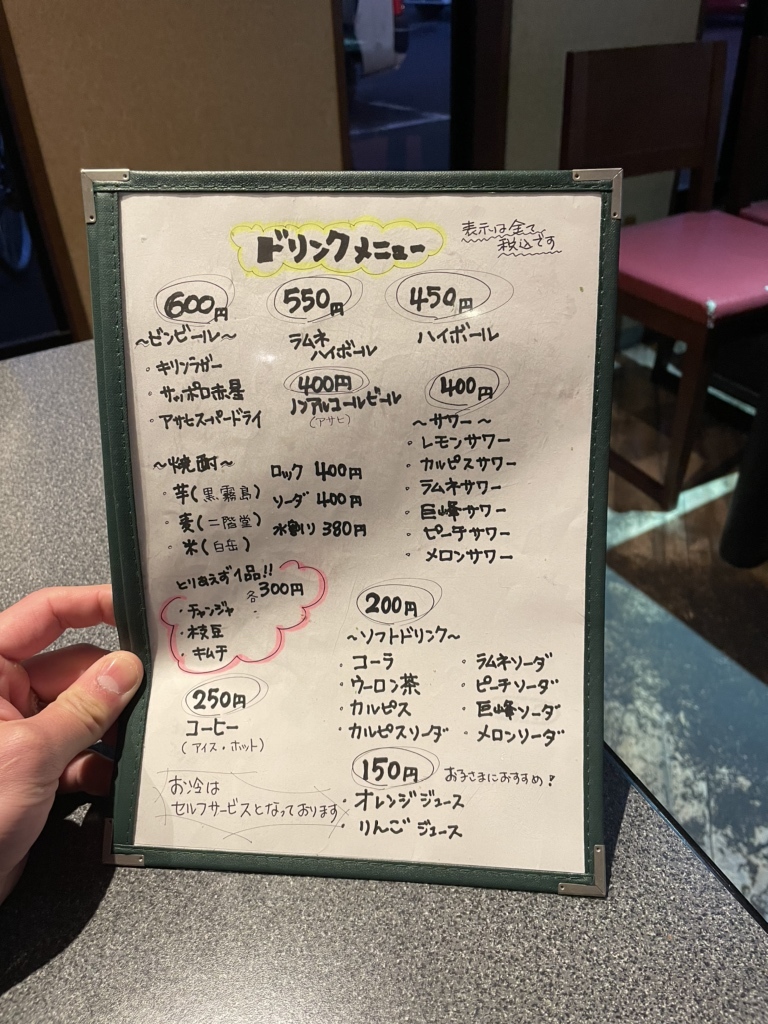 ドリンクメニュー
表示は全て
税込です
600円
〜ビンビール〜
・キリンラガー
・サッポロ赤星
・アサヒスーパードライ
550円
ラムネ
ハイボール
450円
ハイボール
400円
ノンアルコールビール
(アサヒ)
400円
〜サワー〜
・レモンサワー
・カルピスサワー
・ラムネサワー
・巨峰サワー
・ピーチサワー
・メロンサワー
〜焼酎〜
・芋(黒霧島)
・麦(二階堂)
・米(白岳)
ロック 400円
ソーダ 400円
水割り 380円
とりあえず1品!!
各300円
・チャンジャ
・枝豆
・キムチ
250円
コーヒー
(アイス・ホット)
200円
〜ソフトドリンク〜
・コーラ
・ウーロン茶
・カルピス
・カルピスソーダ
・ラムネソーダ
・ピーチソーダ
・巨峰ソーダ
・メロンソーダ
150円 お子さまにおすすめ!
・オレンジジュース
・りんごジュース
お冷は
セルフサービスとなっております